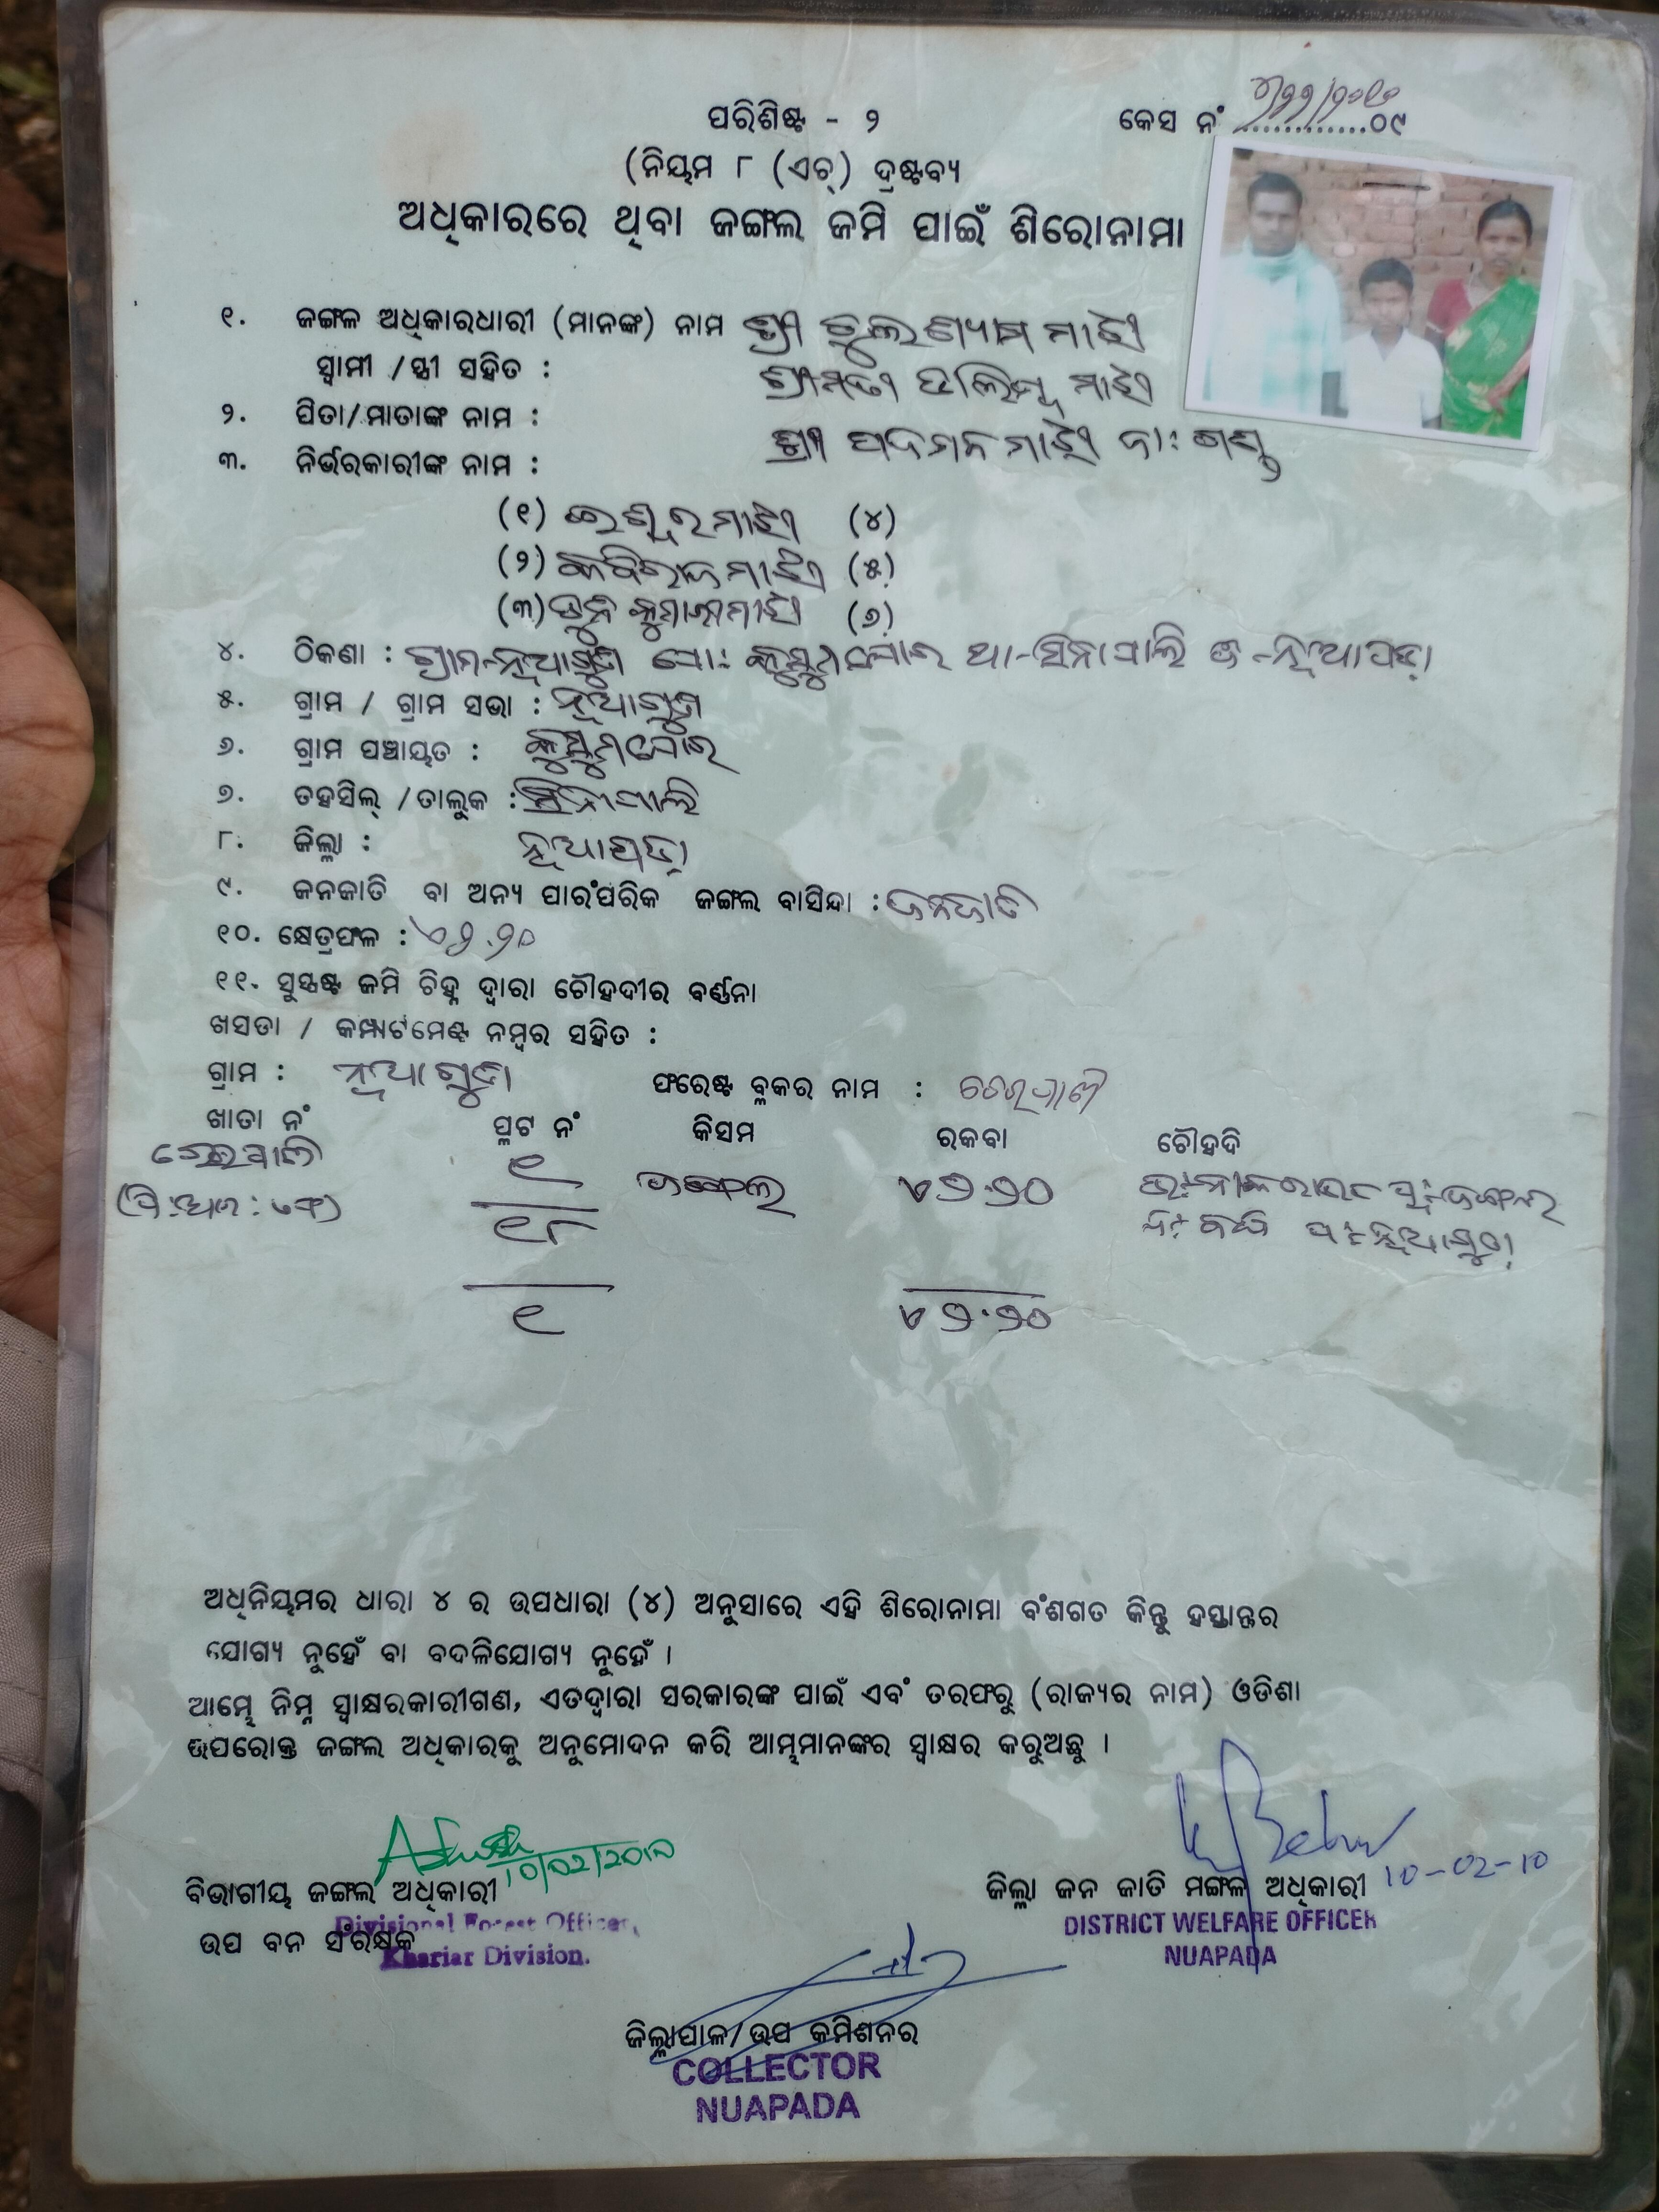 ପରିଶିଷ୍ଟ - ୨
କେସ ନଂ .............୦୯
(ନିୟମ ୮ (ଏଚ୍) ଦ୍ରଷ୍ଟବ୍ୟ
ଅଧିକାରରେ ଥିବା ଜଙ୍ଗଲ ଜମି ପାଇଁ ଶିରୋନାମା
୧. ଜଙ୍ଗଳ ଅଧିକାରଧାରୀ (ମାନଙ୍କ) ନାମ ଶ୍ରୀ ତୁଲଶ୍ୟାମ ମାଝୀ
ସ୍ୱାମୀ / ସ୍ତ୍ରୀ ସହିତ : ଶ୍ରୀମତୀ ମାଝୀ
୨. ପିତା/ମାତାଙ୍କ ନାମ : ଶ୍ରୀ ପଦମନ ମାଝୀ ଜା: ଗଣ୍ଡ
୩. ନିର୍ଭରକାରୀଙ୍କ ନାମ :
(୧) ମାଝୀ (୪)
(୨) କବିରାଜ ମାଝୀ (୫)
(୩) ମାଝୀ (୬)
୪. ଠିକଣା : ଗ୍ରାମ-ନୂଆଗୁଡା ପୋ: ଥା-ସିନାପାଲି ଜି-ନୂଆପଡ଼ା
୫. ଗ୍ରାମ / ଗ୍ରାମ ସଭା : ନୂଆଗୁଡା
୬. ଗ୍ରାମ ପଞ୍ଚାୟତ :
୭. ତହସିଲ୍ / ତାଲୁକ : ସିନାପାଲି
୮. ଜିଲ୍ଲା : ନୂଆପଡ଼ା
୯. ଜନଜାତି ବା ଅନ୍ୟ ପାରଂପରିକ ଜଙ୍ଗଲ ବାସିନ୍ଦା : ଜନଜାତି
୧୦. କ୍ଷେତ୍ରଫଳ : ଏ ୨.୨୦
୧୧. ସୁସ୍ପଷ୍ଟ ଜମି ଚିହ୍ନ ଦ୍ୱାରା ଚୌହଦୀର ବର୍ଣ୍ଣନା
ଖସଡା / କମ୍ପାର୍ଟମେଣ୍ଟ ନମ୍ବର ସହିତ :
ଗ୍ରାମ : ନୂଆଗୁଡା ଫରେଷ୍ଟ ବ୍ଲକର ନାମ :
ଖାତା ନଂ ପ୍ଲଟ ନଂ କିସମ ରକବା ଚୌହଦି
୧
ଜଙ୍ଗଲ ଏ ୨.୨୦
୧୮
୧ ଏ ୨.୨୦
ଅଧିନିୟମର ଧାରା ୪ ର ଉପଧାରା (୪) ଅନୁସାରେ ଏହି ଶିରୋନାମା ବଂଶଗତ କିନ୍ତୁ ହସ୍ତାନ୍ତର
ଯୋଗ୍ୟ ନୁହେଁ ବା ବଦଳିଯୋଗ୍ୟ ନୁହେଁ ।
ଆମ୍ଭେ ନିମ୍ନ ସ୍ୱାକ୍ଷରକାରୀଗଣ, ଏତଦ୍ୱାରା ସରକାରଙ୍କ ପାଇଁ ଏବଂ ତରଫରୁ (ରାଜ୍ୟର ନାମ) ଓଡିଶା
ଉପରୋକ୍ତ ଜଙ୍ଗଲ ଅଧିକାରକୁ ଅନୁମୋଦନ କରି ଆମ୍ଭମାନଙ୍କର ସ୍ୱାକ୍ଷର କରୁଅଛୁ ।
10/02/2010
ବିଭାଗୀୟ ଜଙ୍ଗଲ ଅଧିକାରୀ
Divisional Forest Officer,
ଉପ ବନ ସଂରକ୍ଷକ
Khariar Division.
10-02-10
ଜିଲ୍ଲା ଜନ ଜାତି ମଙ୍ଗଳ ଅଧିକାରୀ
DISTRICT WELFARE OFFICER
NUAPADA
ଜିଲ୍ଲାପାଳ/ଉପ କମିଶନର
COLLECTOR
NUAPADA